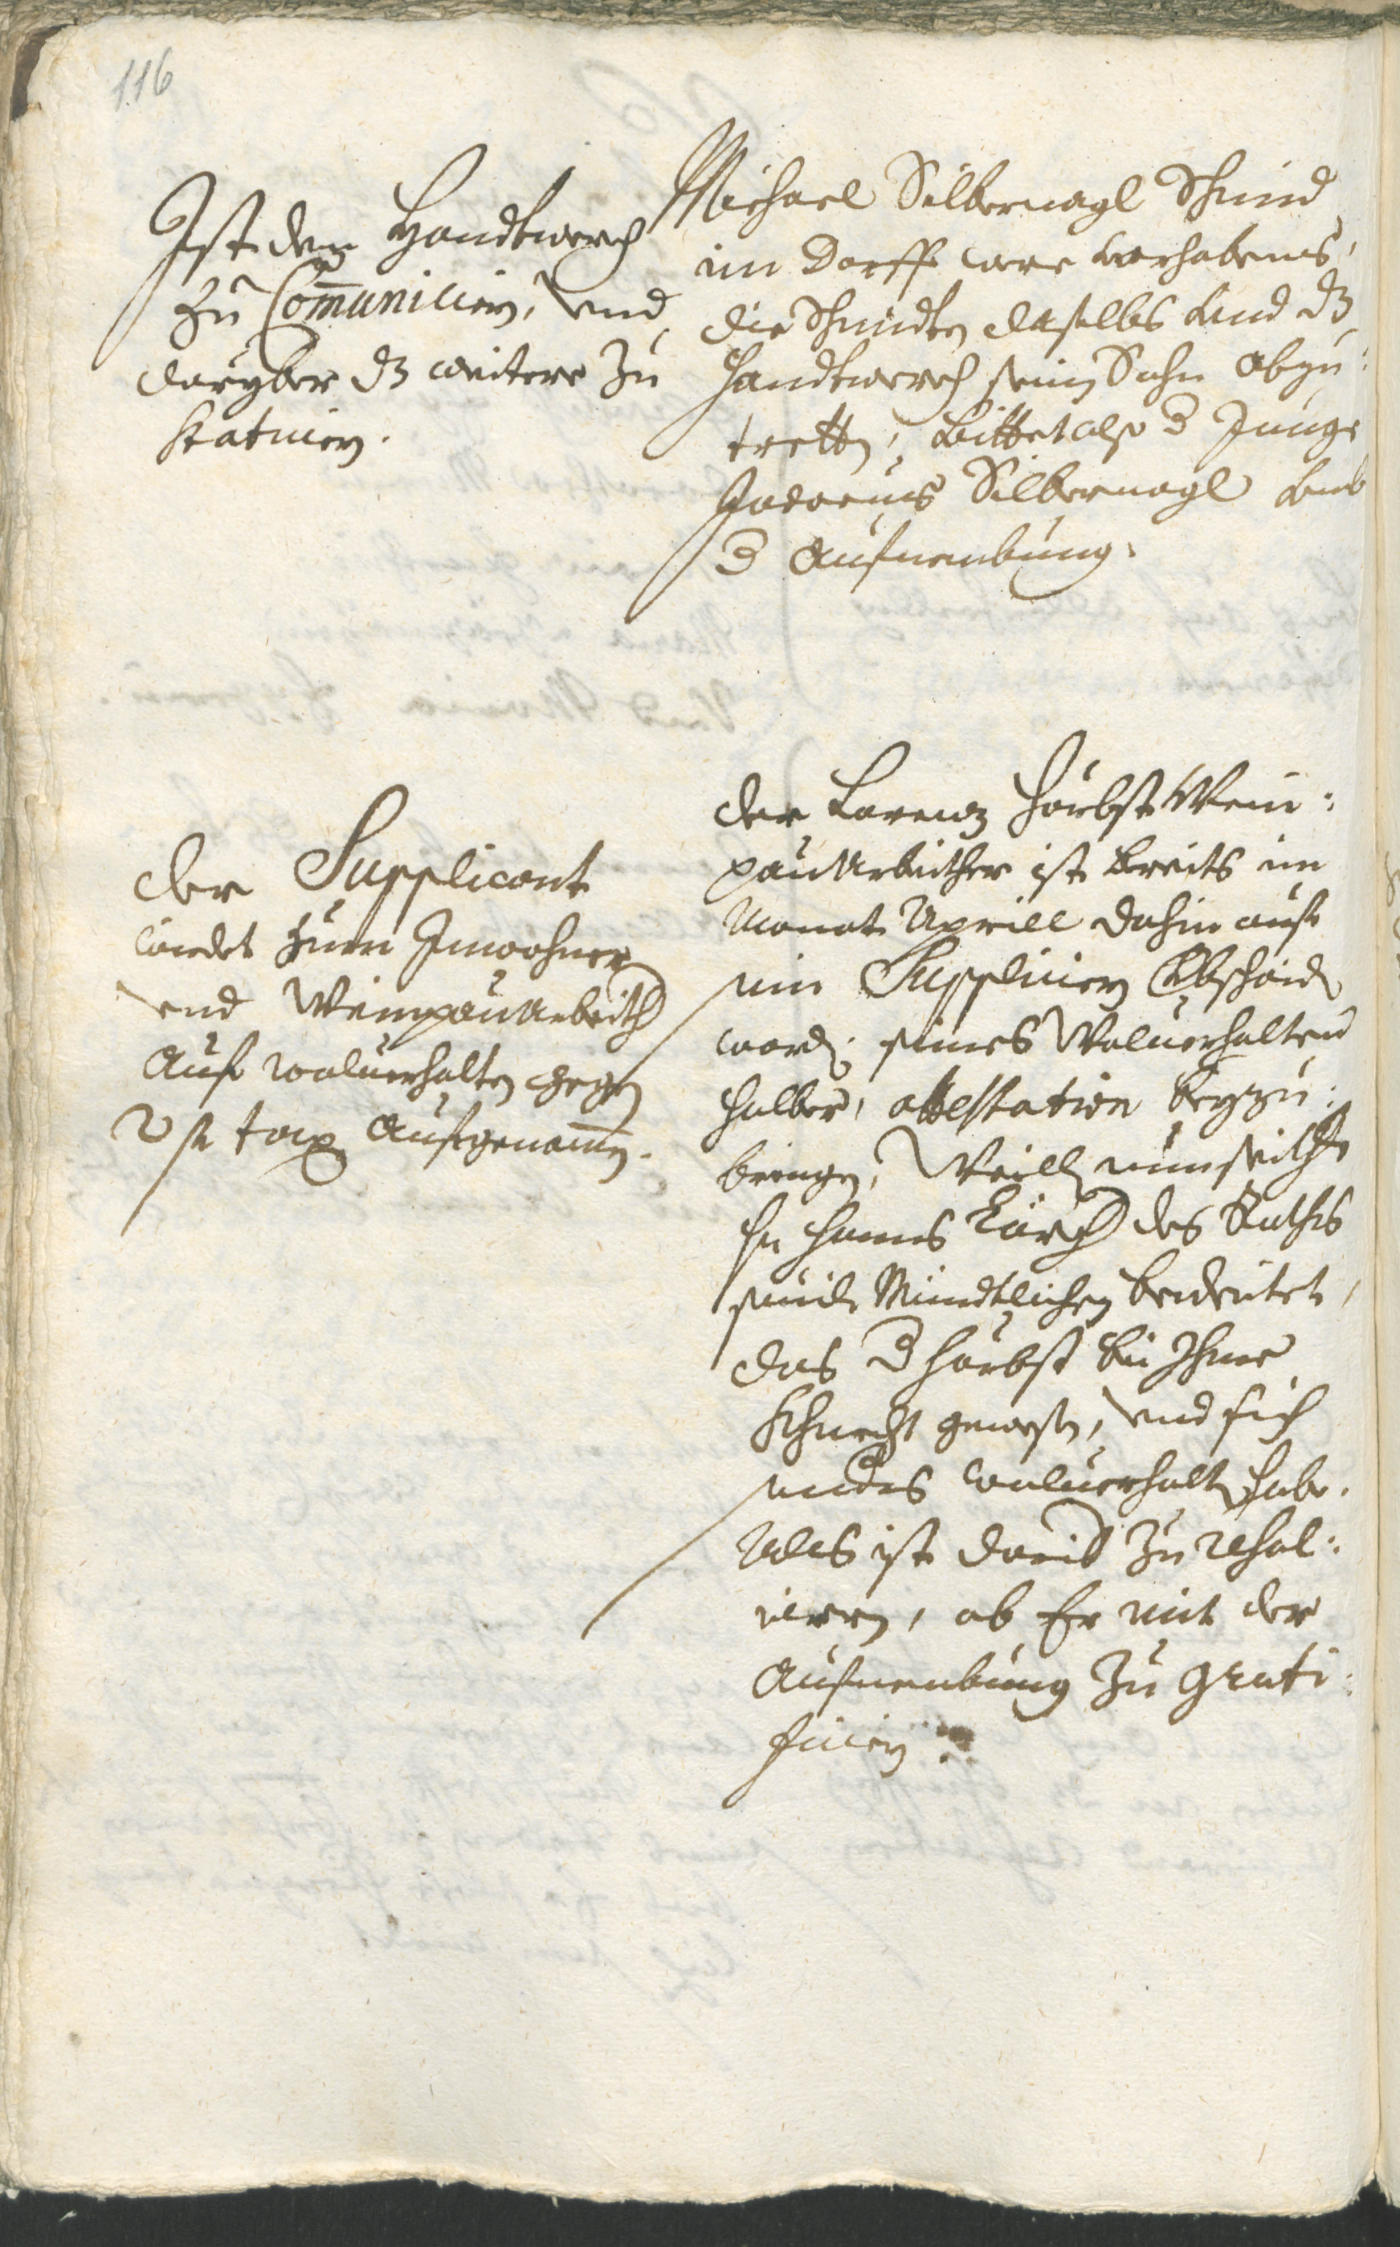 116
Ist dem Handtwerch
zu Com̄uniciern, vnd
daryber dz weitere zu
statuiern.
Michael Silbernagl Schmid
im Dorff were vorhabens,
die Schmidten daselbs vnd dz
Handtwerch seim Sohn abzu:
tretten, bittet also d Junge
Silbernagl vmb
d Aufnembung.
der Supplicant
wirdet zum Inwohner
vnd Weinpauarbeither
Auf wolverhalten gegen
2 f tax Aufgenom̄en.
der Lorenz Hörbst Wein:
pauarbeither ist bereits im
Monat Aprill dahin auf
sein Suppliciern Abschaid
word. seines Wolverhaltens
halber, attestation beyzu:
bringen, Weill nun seith
Hr Hanns Lärch des Raths
Mündtlichen bedeitet,
das d Hörbst bei Ihme
Khnecht gewesen, vnd sich
wolverhalten habe.
Als ist darüb zu resol:
viern, ob Er mit der
Aufnembung zu grati:
ficiern.